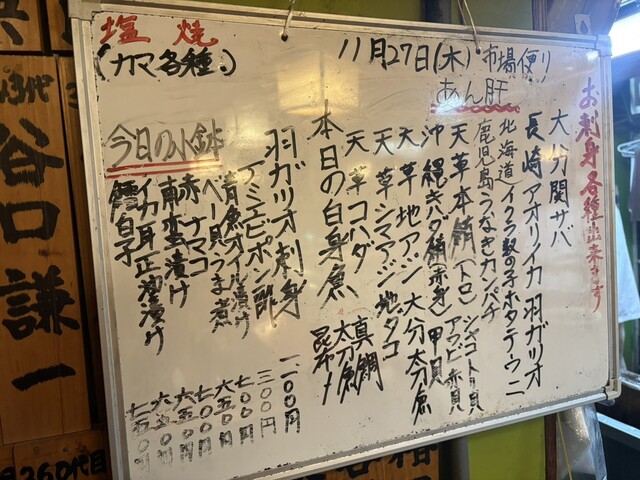 お刺身各種出来ます
11月27日(木)市場便り
あん肝
大分関サバ
長崎アオリイカ 羽ガツオ
北海道)イクラ 数の子 ホタテ ウニ
鹿児島)うなぎ カンパチ
天草本鮪(トロ) シャコ トリ貝
沖縄キバダ鮪(赤身) アワビ 赤貝
天草地アジ 甲貝
天草シマアジ 大分太刀魚
天草コハダ 地ダコ
本日の白身魚 真鯛
太刀魚
昆布〆
塩焼
(カマ各種)
今日の小鉢
羽ガツオ刺身 一一〇〇円
アミエビポン酢 三〇〇円
青魚オイル漬け 七〇〇円
ベー貝うま煮 六五〇円
赤ナマコ 七〇〇円
六五〇円
イカ耳正油漬け 七五〇円
鱈白子 七五〇円
谷口謙一
360代目